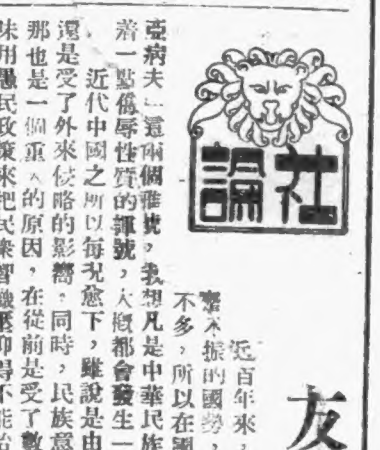 友
社論
近百年來，
不振的國勢，
不多，所以在國
亞病夫﹂這兩個雅號，我想凡是中華民族
着一點侮辱性質的諢號，大概都會發生一
近代中國之所以每況愈下，雖說是由
還是受了外來侵略的影響。同時，民族意
那也是一個重大的原因，在從前是受了數
味用愚民政策來把民衆壓抑得不能抬